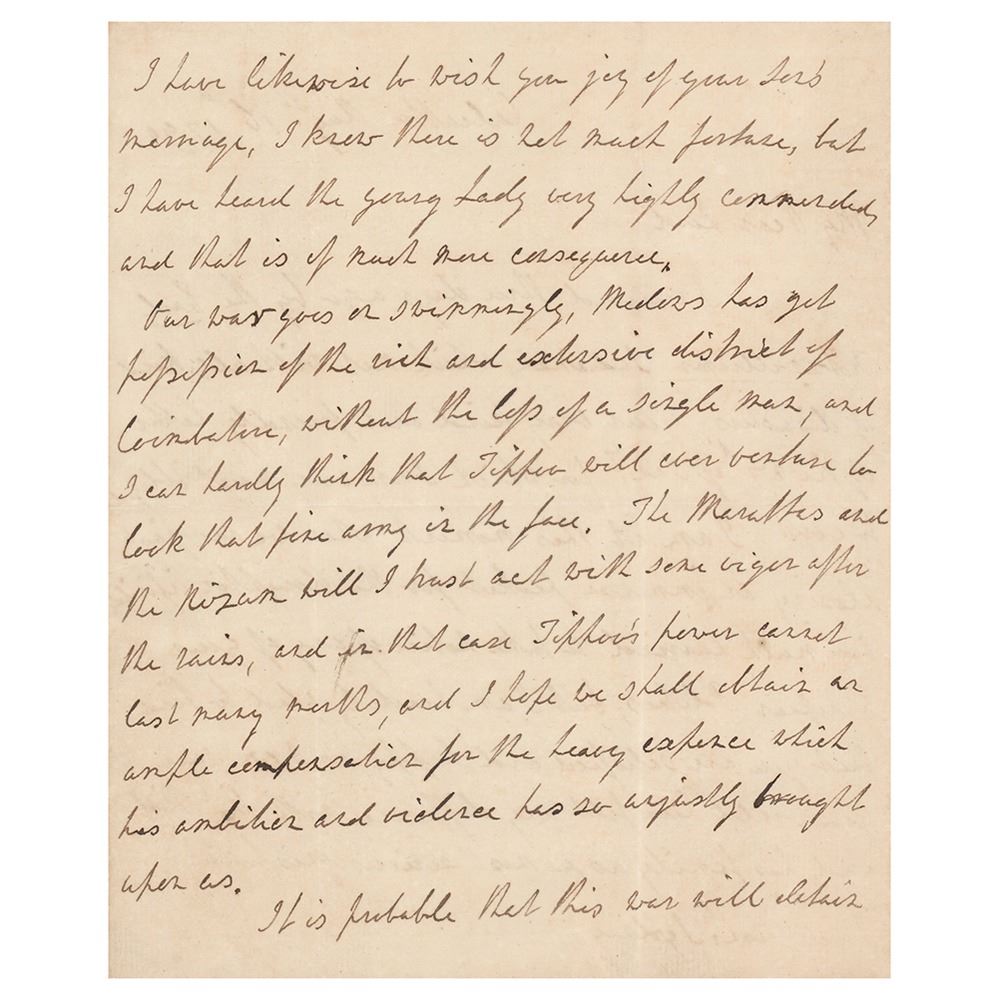 I have likewise to wish you joy of your Son's
marriage, I know there is not much fortune, but
I have heard the young Lady very highly commended,
and that is of much more consequence.
Our war goes on swimmingly, Medows has got
possession of the rich and extensive district of
Coimbatore, without the loss of a single man, and
I can hardly think that Tippoo will ever venture to
look that fine army in the face. The Marattas and
the Nizam will I trust act with some vigor after
the rains, and in that case Tippoo's power cannot
last many months, and I hope we shall obtain an
ample compensation for the heavy expence which
his ambition and violence has so unjustly brought
upon us.
It is probable that this war will detain